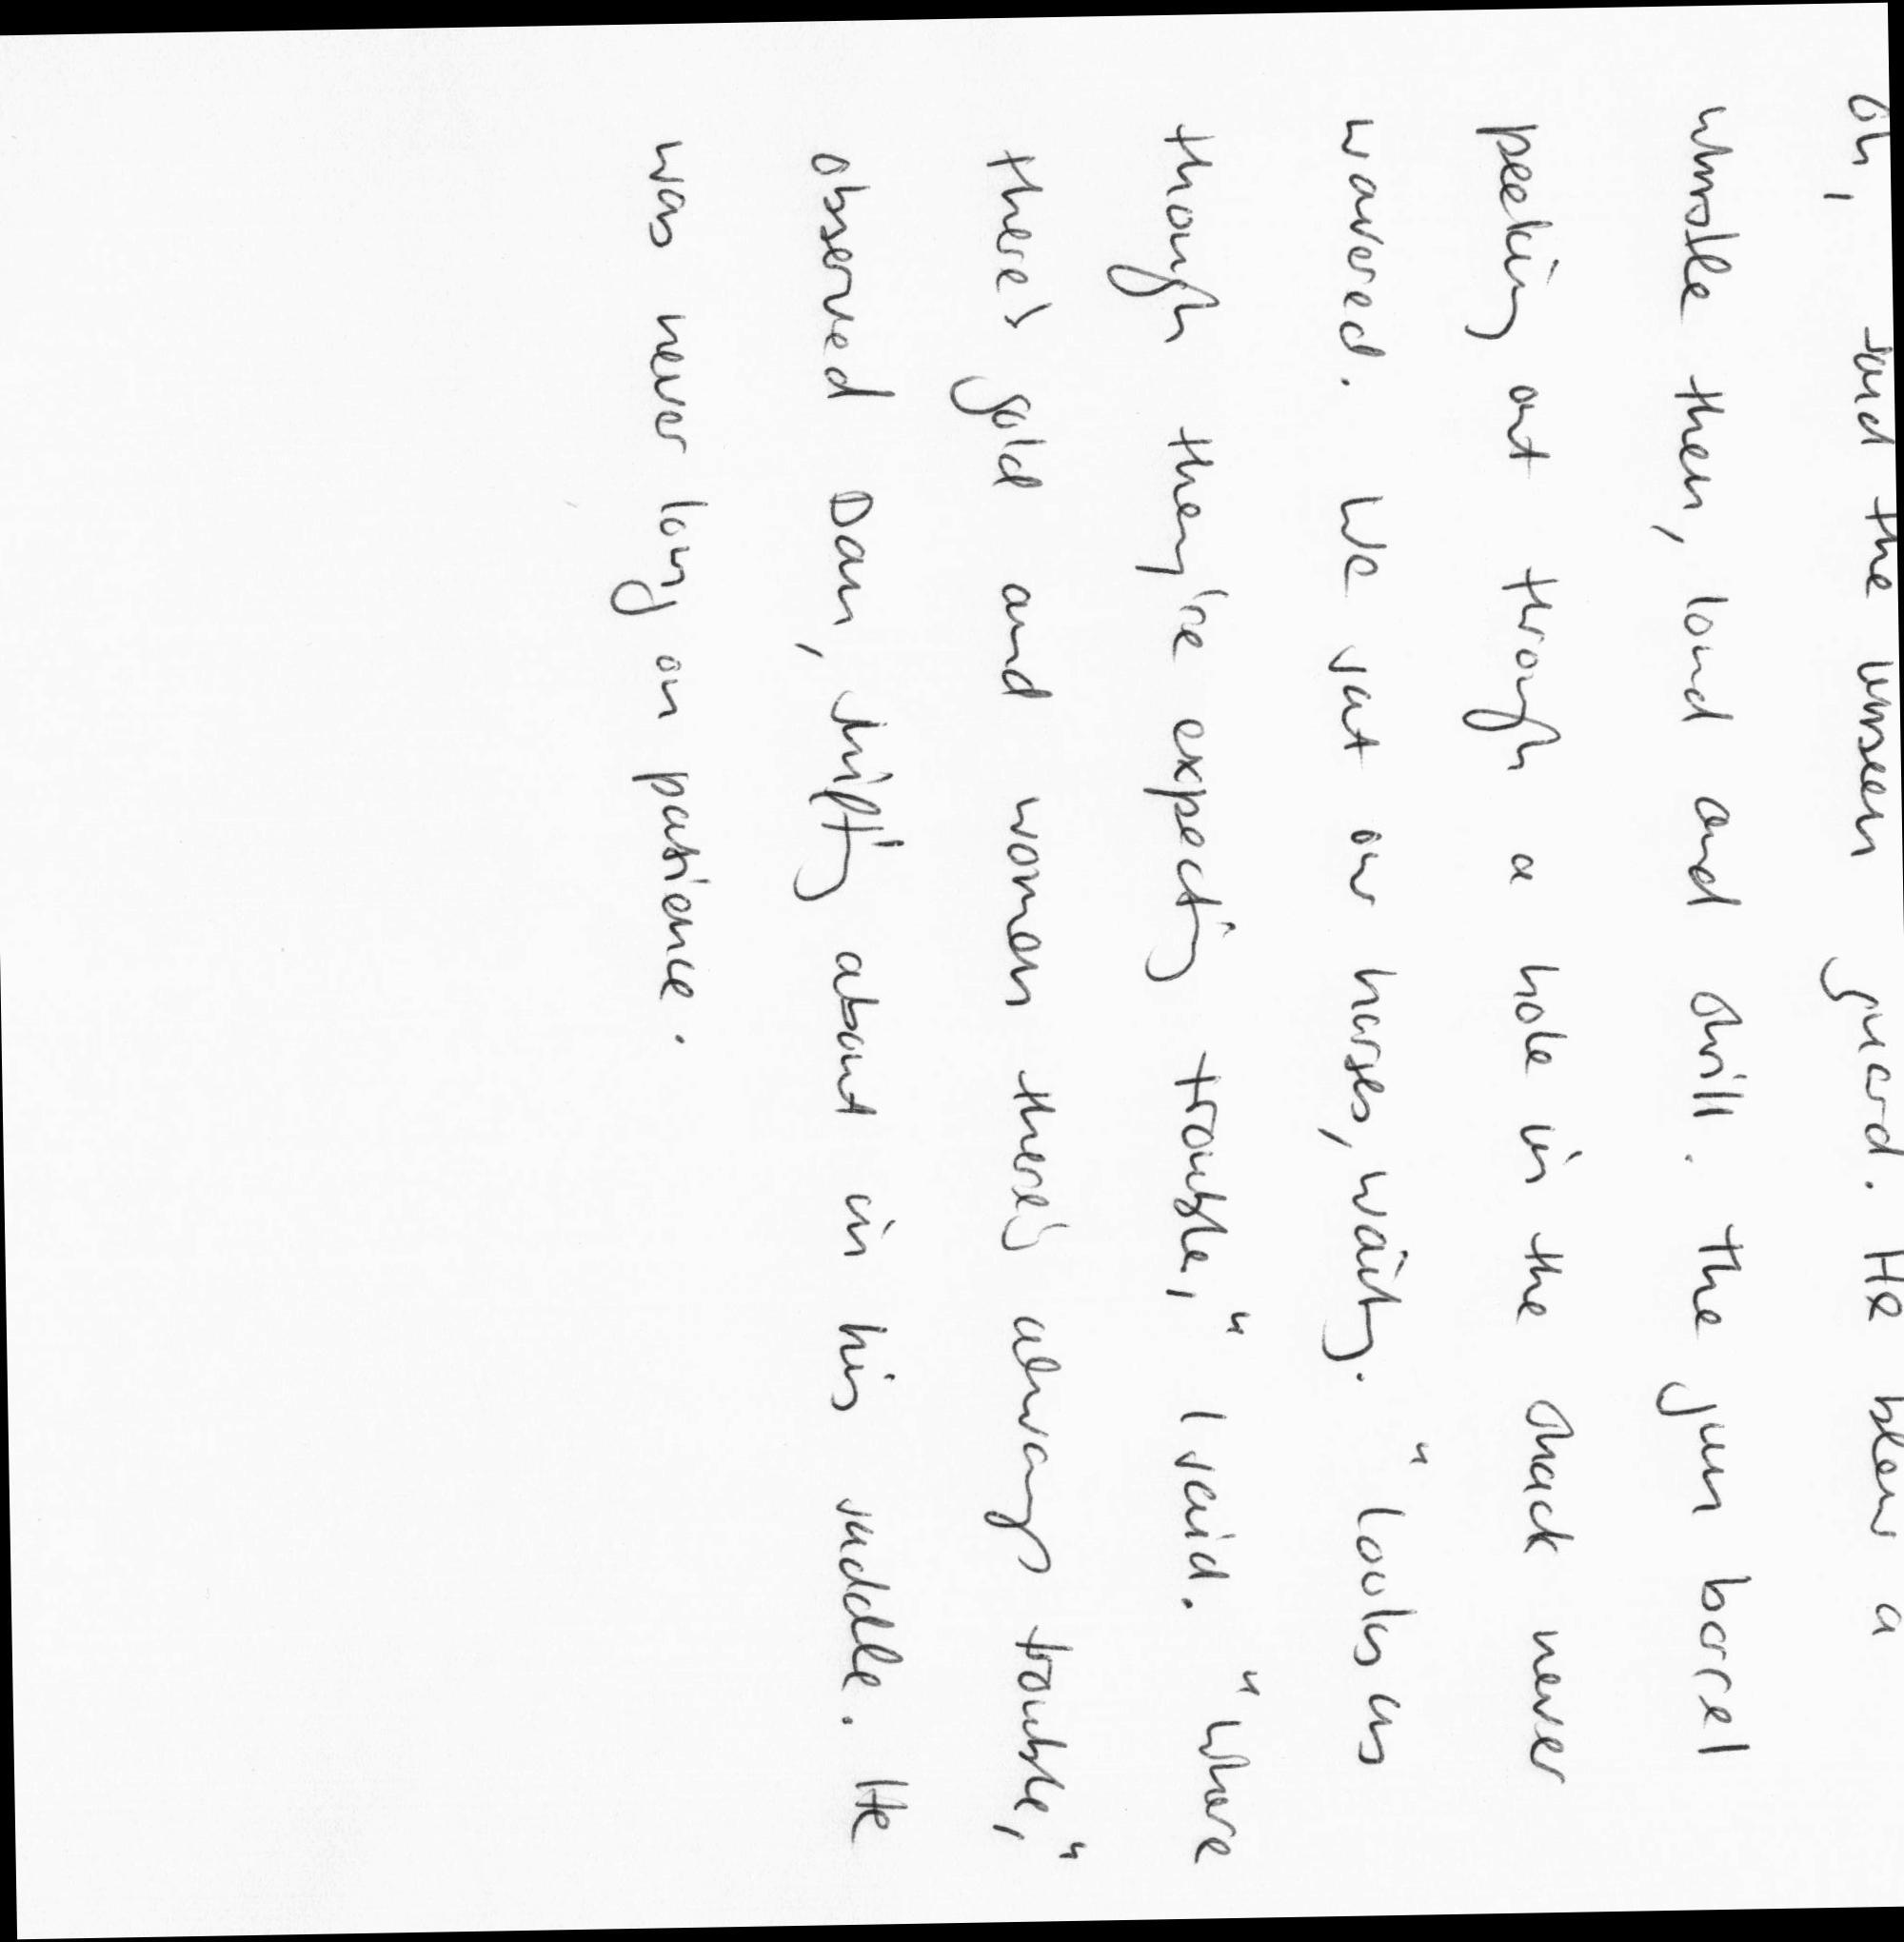 oh, said the unseen guard. He blew a
whistle then, loud and shrill. The gun barrel
peeking out through a hole in the shack never
wavered. We sat our horses, waiting. "Looks as
though they're expecting trouble," I said. "Where
there's gold and women there's always trouble,"
observed Dan, shifting about in his saddle. He
was never long on patience.